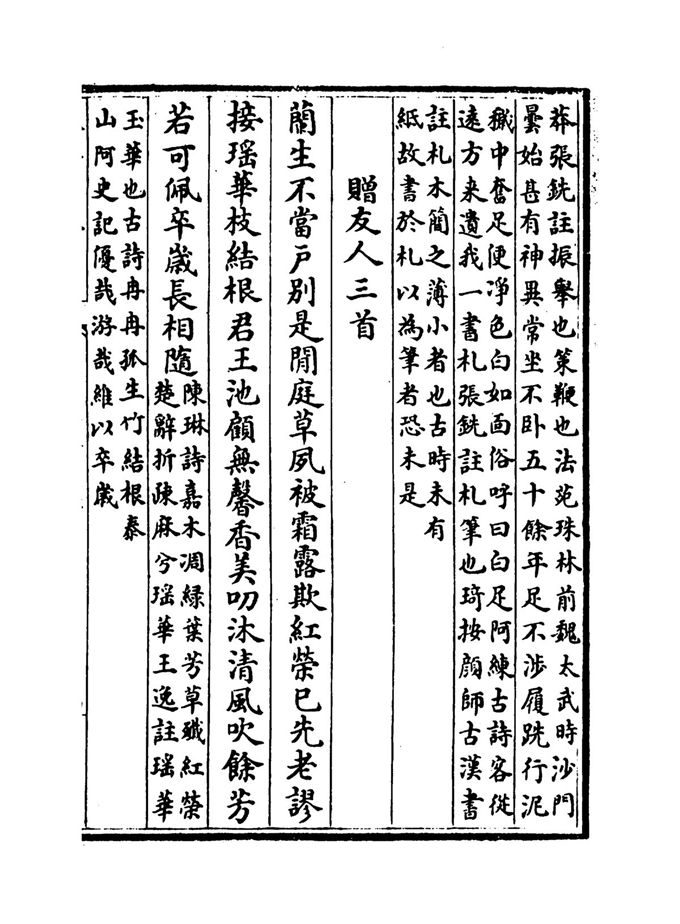 莽張銑註振舉也策鞭也法苑珠林前魏太武時沙門
曇始甚有神異常坐不卧五十餘年足不渉履跣行泥
獄中奮足便凈色白如面俗呼曰白足阿練古詩客從
逺方来遺我一書札張銑註札筆也琦按顔師古漢書
註札木簡之薄小者也古時未有
紙故書於札以為筆者恐未是
贈友人三首
蘭生不當戸别是閒庭草夙被霜露欺紅榮已先老謬
接瑶華枝結根君王池顧無馨香美叨沐清風吹餘芳
若可佩卒嵗長相隨
陳琳詩嘉木凋緑葉芳草殲紅榮
楚辭折疎麻兮瑶華王逸註瑶華
玉華也古詩冉冉孤生竹結根泰
山阿史記優哉游哉維以卒嵗